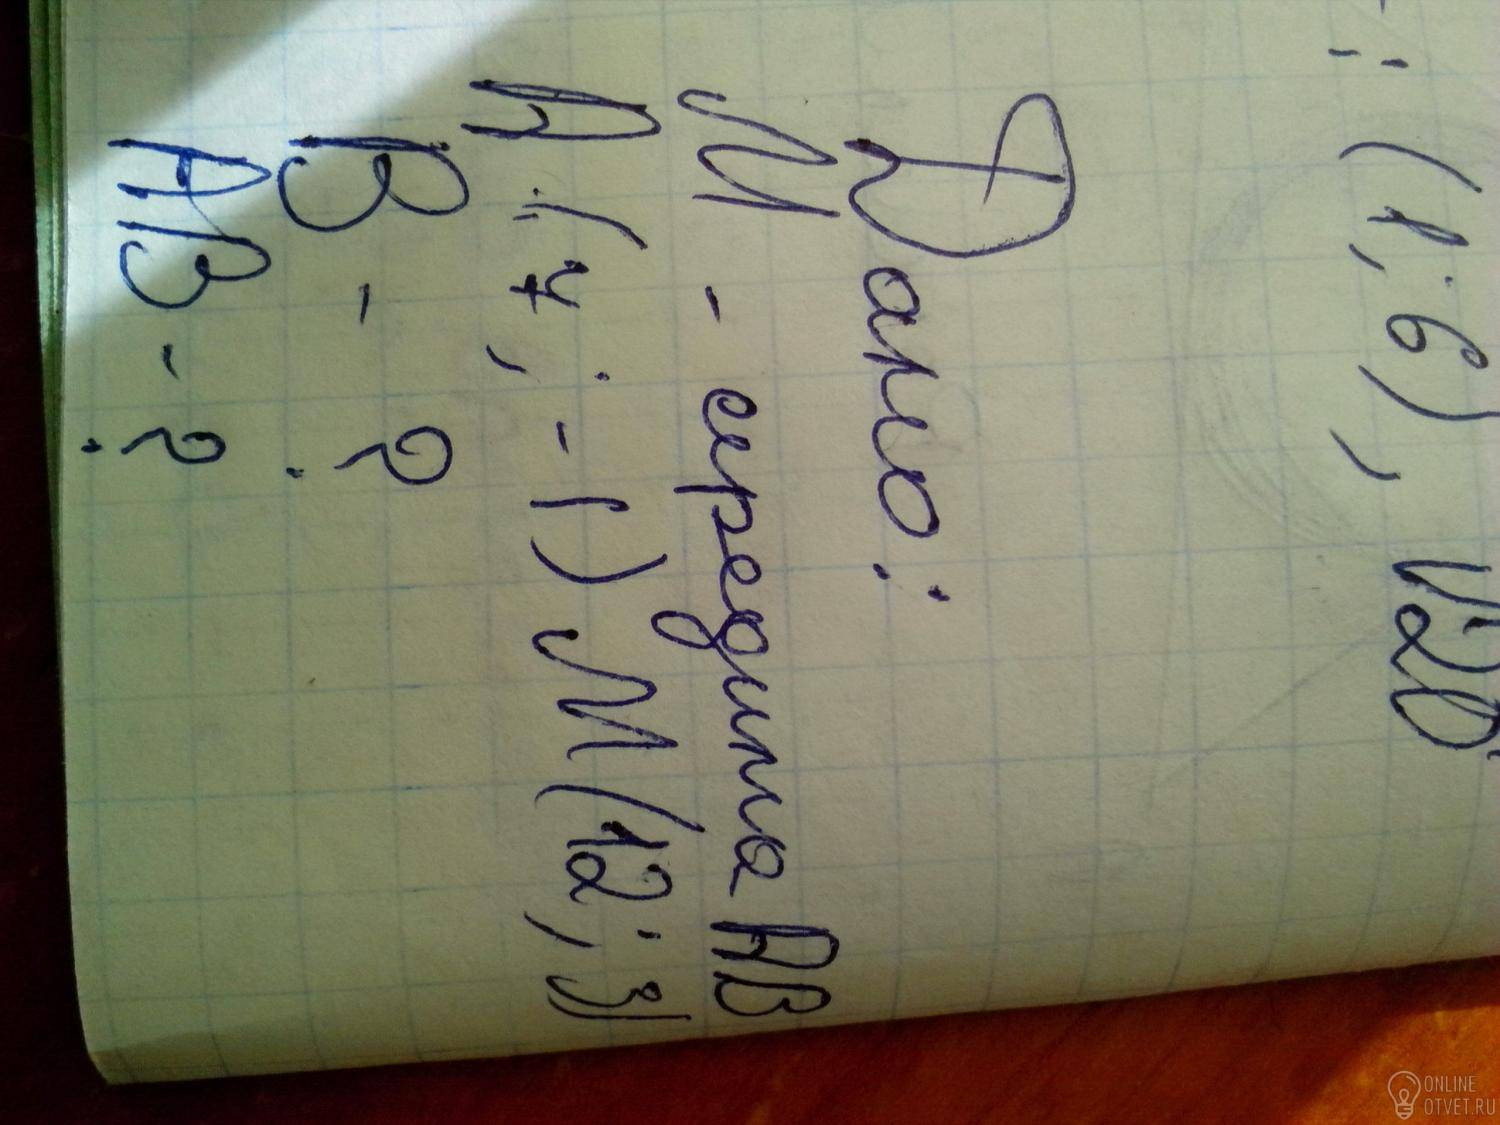 (1; 6),
Дано:
М - середина АВ
А (7; -1) М(12; 3)
В - ?
АВ - ?
ONLINE
OTVET.RU